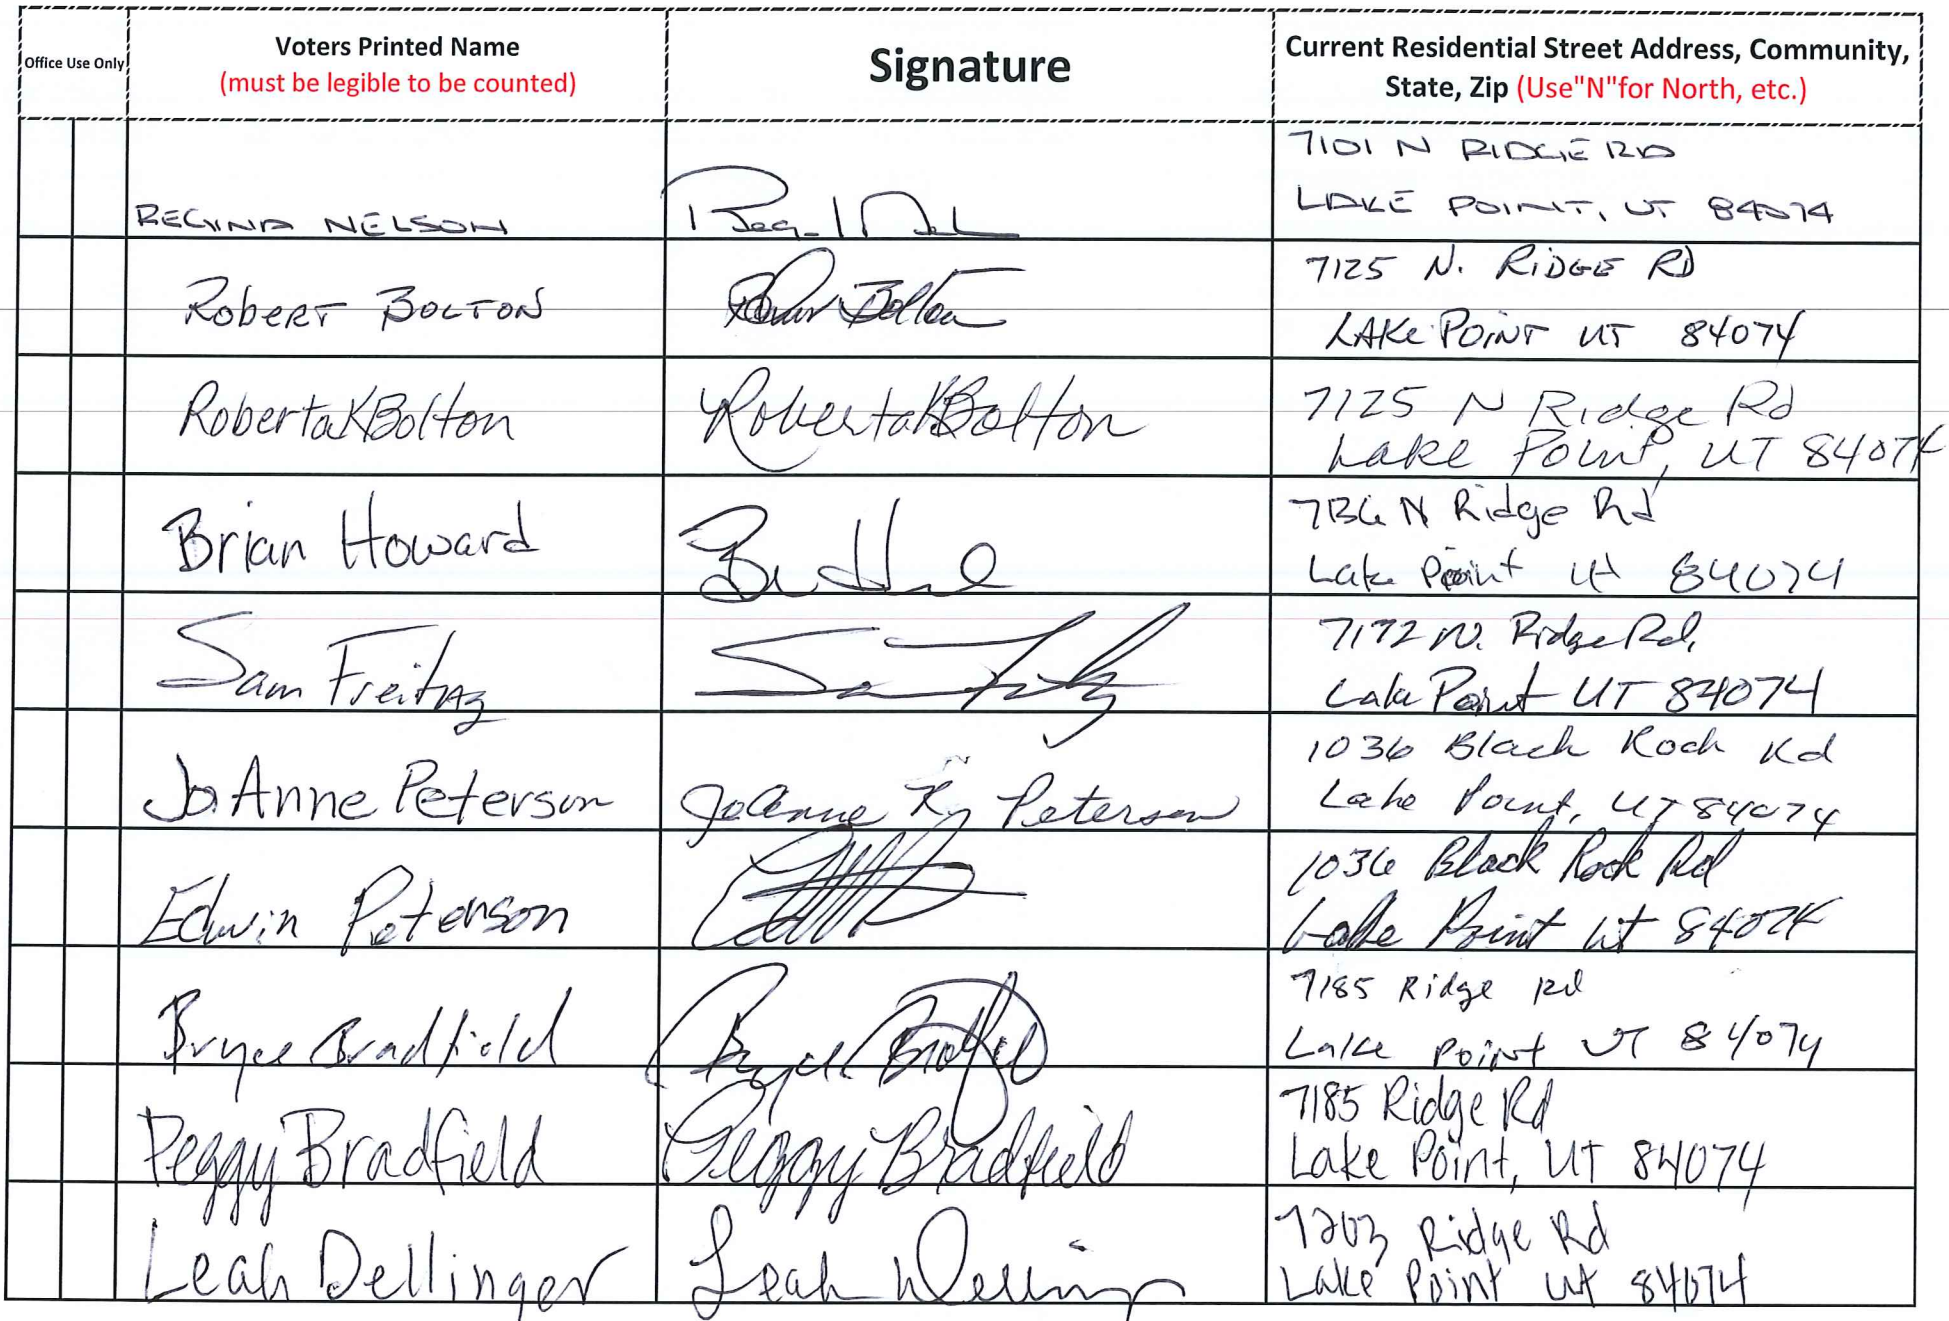 Office Use Only
Voters Printed Name
(must be legible to be counted)
Signature
Current Residential Street Address, Community,
State, Zip (Use"N"for North, etc.)
7101 N RIDGE RD
REGINA NELSON
LAKE POINT, UT 84074
Robert BOLTON
Bolton
7125 N. RIDGE RD
LAKE POINT UT 84074
Roberta K Bolton
Roberta K Bolton
7125 N Ridge Rd
Lake Point, UT 84074
Brian Howard
7136 N Ridge Rd
Lake Point Ut 84074
Sam Freitag
N. Ridge Rd,
Lake Point UT 84074
JoAnne Peterson
JoAnne K Peterson
1036 Black Rock Rd
Lake Point, UT 84074
Edwin Peterson
1036 Black Rock Rd
Lake Point Ut 84074
Bryce Bradfield
Bryce
7185 Ridge Rd
Lake Point UT 84074
Peggy Bradfield
Peggy Bradfield
7185 Ridge Rd
Lake Point, UT 84074
Leah Dellinger
Leah
7203 Ridge Rd
Lake Point Ut 84074